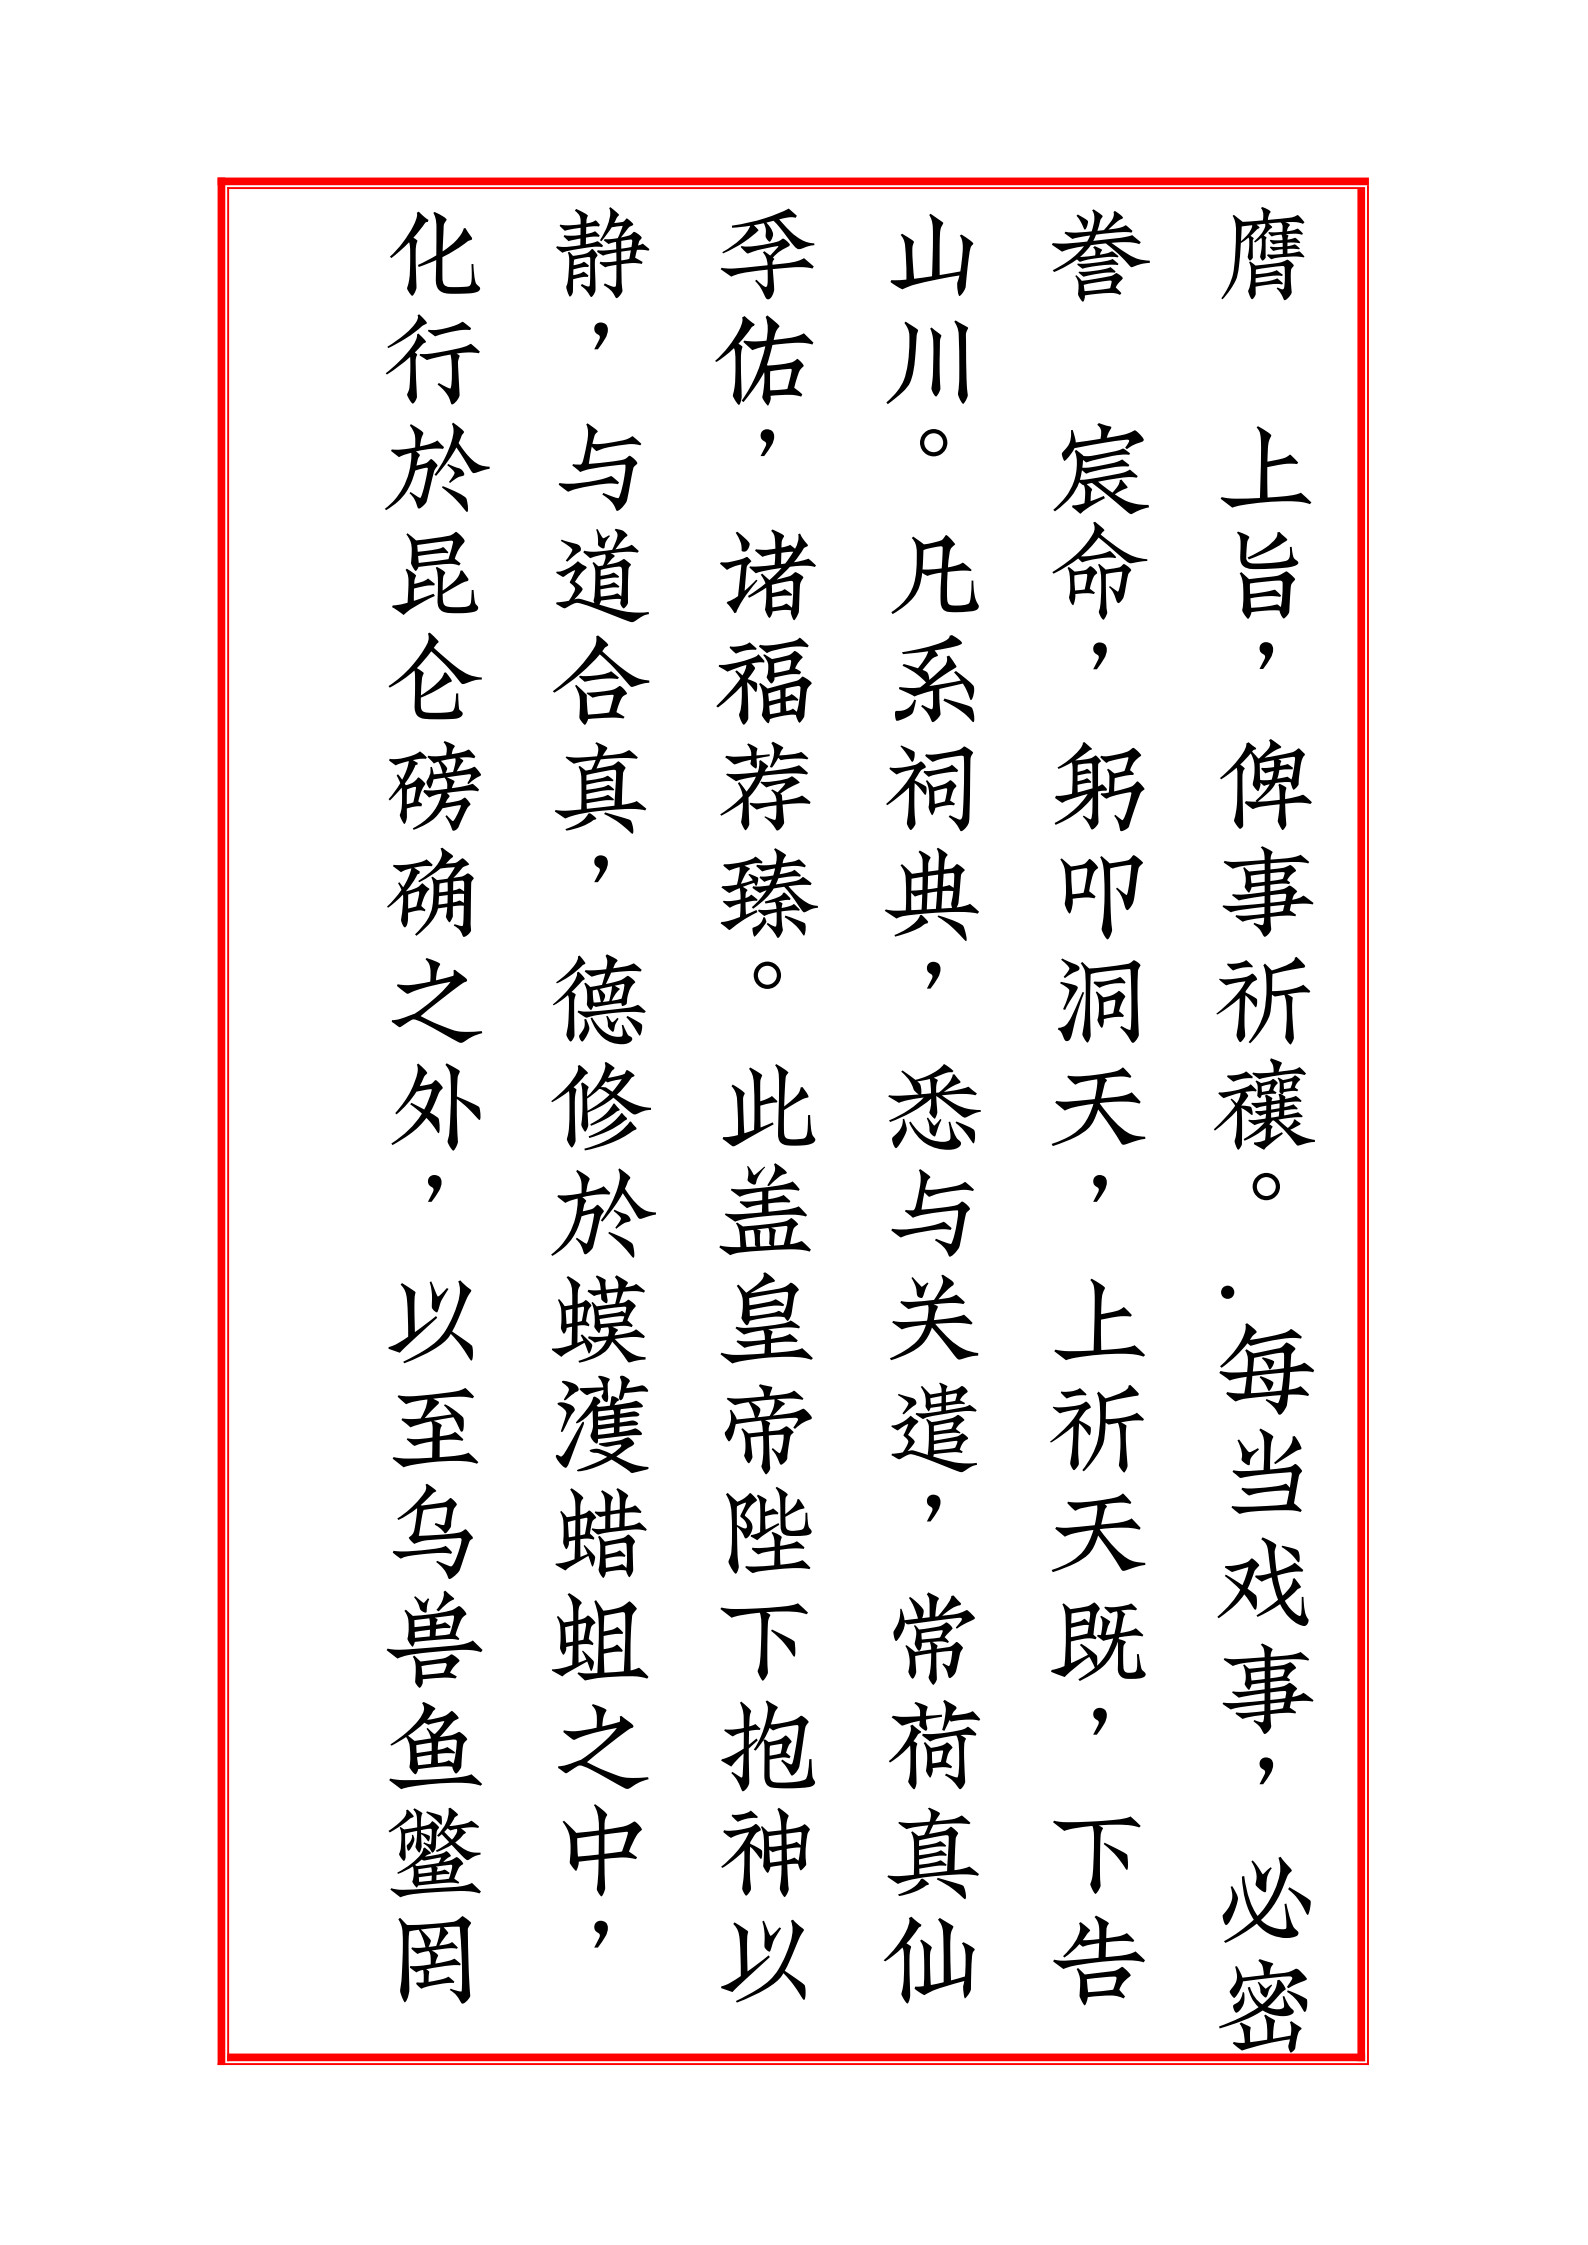 膺　上旨，俾事祈禳。·每当戏事，必密
誊　宸命，躬叩洞天，上祈天既，下告
山川。凡系祠典，悉与关遣，常荷真仙
孚佑，诸福荐臻。此盖皇帝陛下抱神以
静，与道合真，德修於蟆濩蜡蛆之中，
化行於昆仑磅确之外，以至乌兽鱼鳖罔